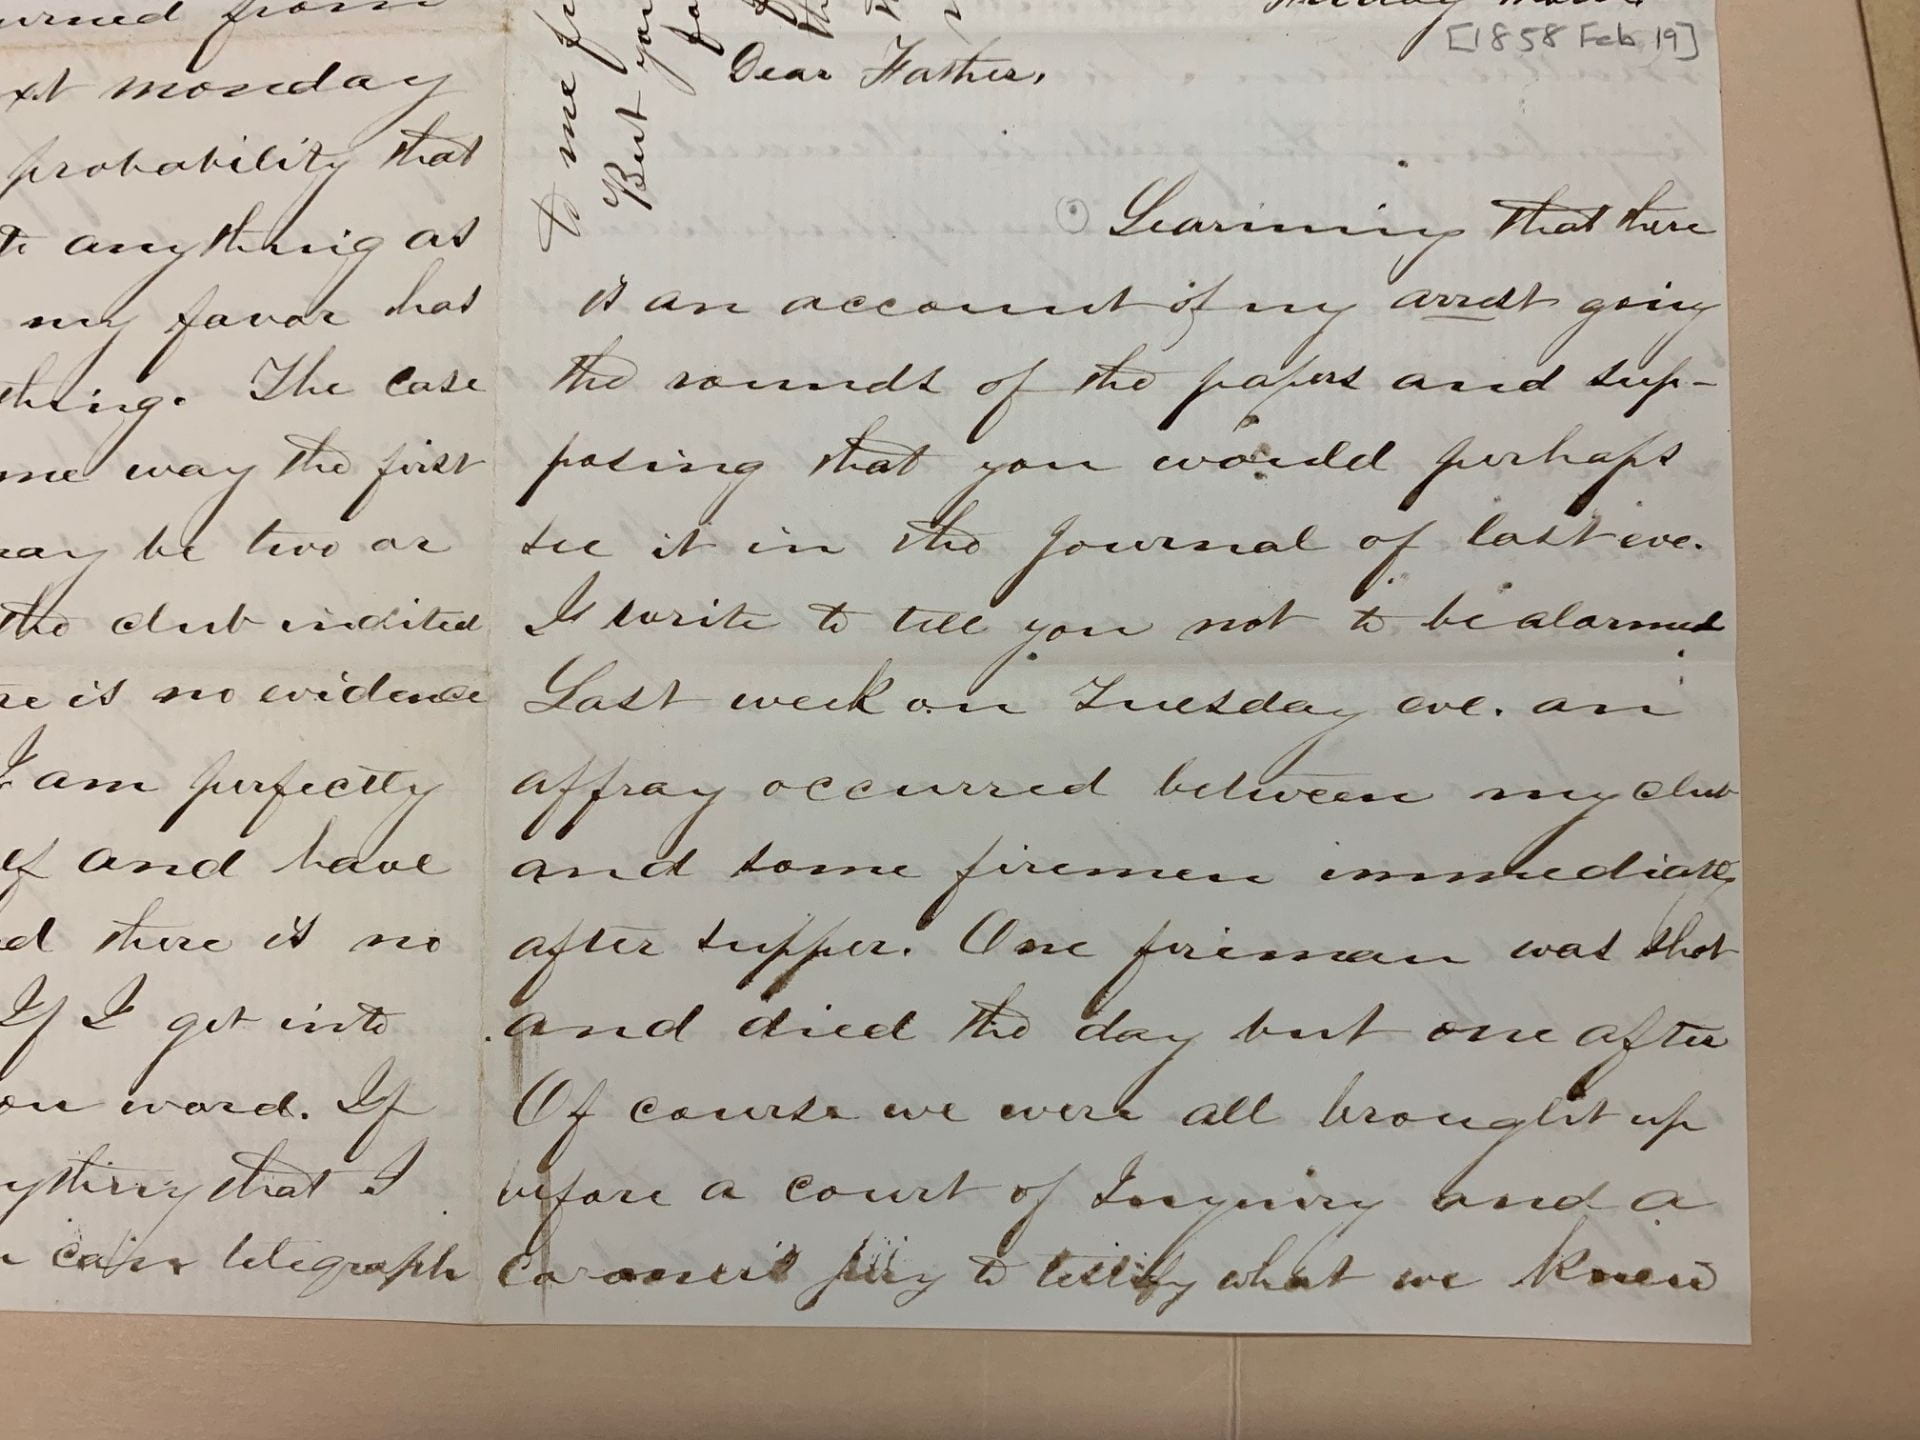 urned from
xt monday
probability that
te anything as
my favor has
thing. The case
me way the first
may be two or
the club indited
re is no evidence
I am perfectly
lf and have
d there is no
If I get into
ou word. If
ything that I
can telegraph
to me
But you
[1858 Feb 19]
Dear Father,
Learning that there
is an account of my arrest going
the rounds of the papers and sup-
posing that you would perhaps
see it in the Journal of last eve.
I write to tell you not to be alarmed
Last week on Tuesday eve. an
affray occurred between my club
and some firemen immediately
after supper. One fireman was shot
and died the day but one after
Of course we were all brought up
before a court of Inquiry and a
coroner's jury to testify what we knew